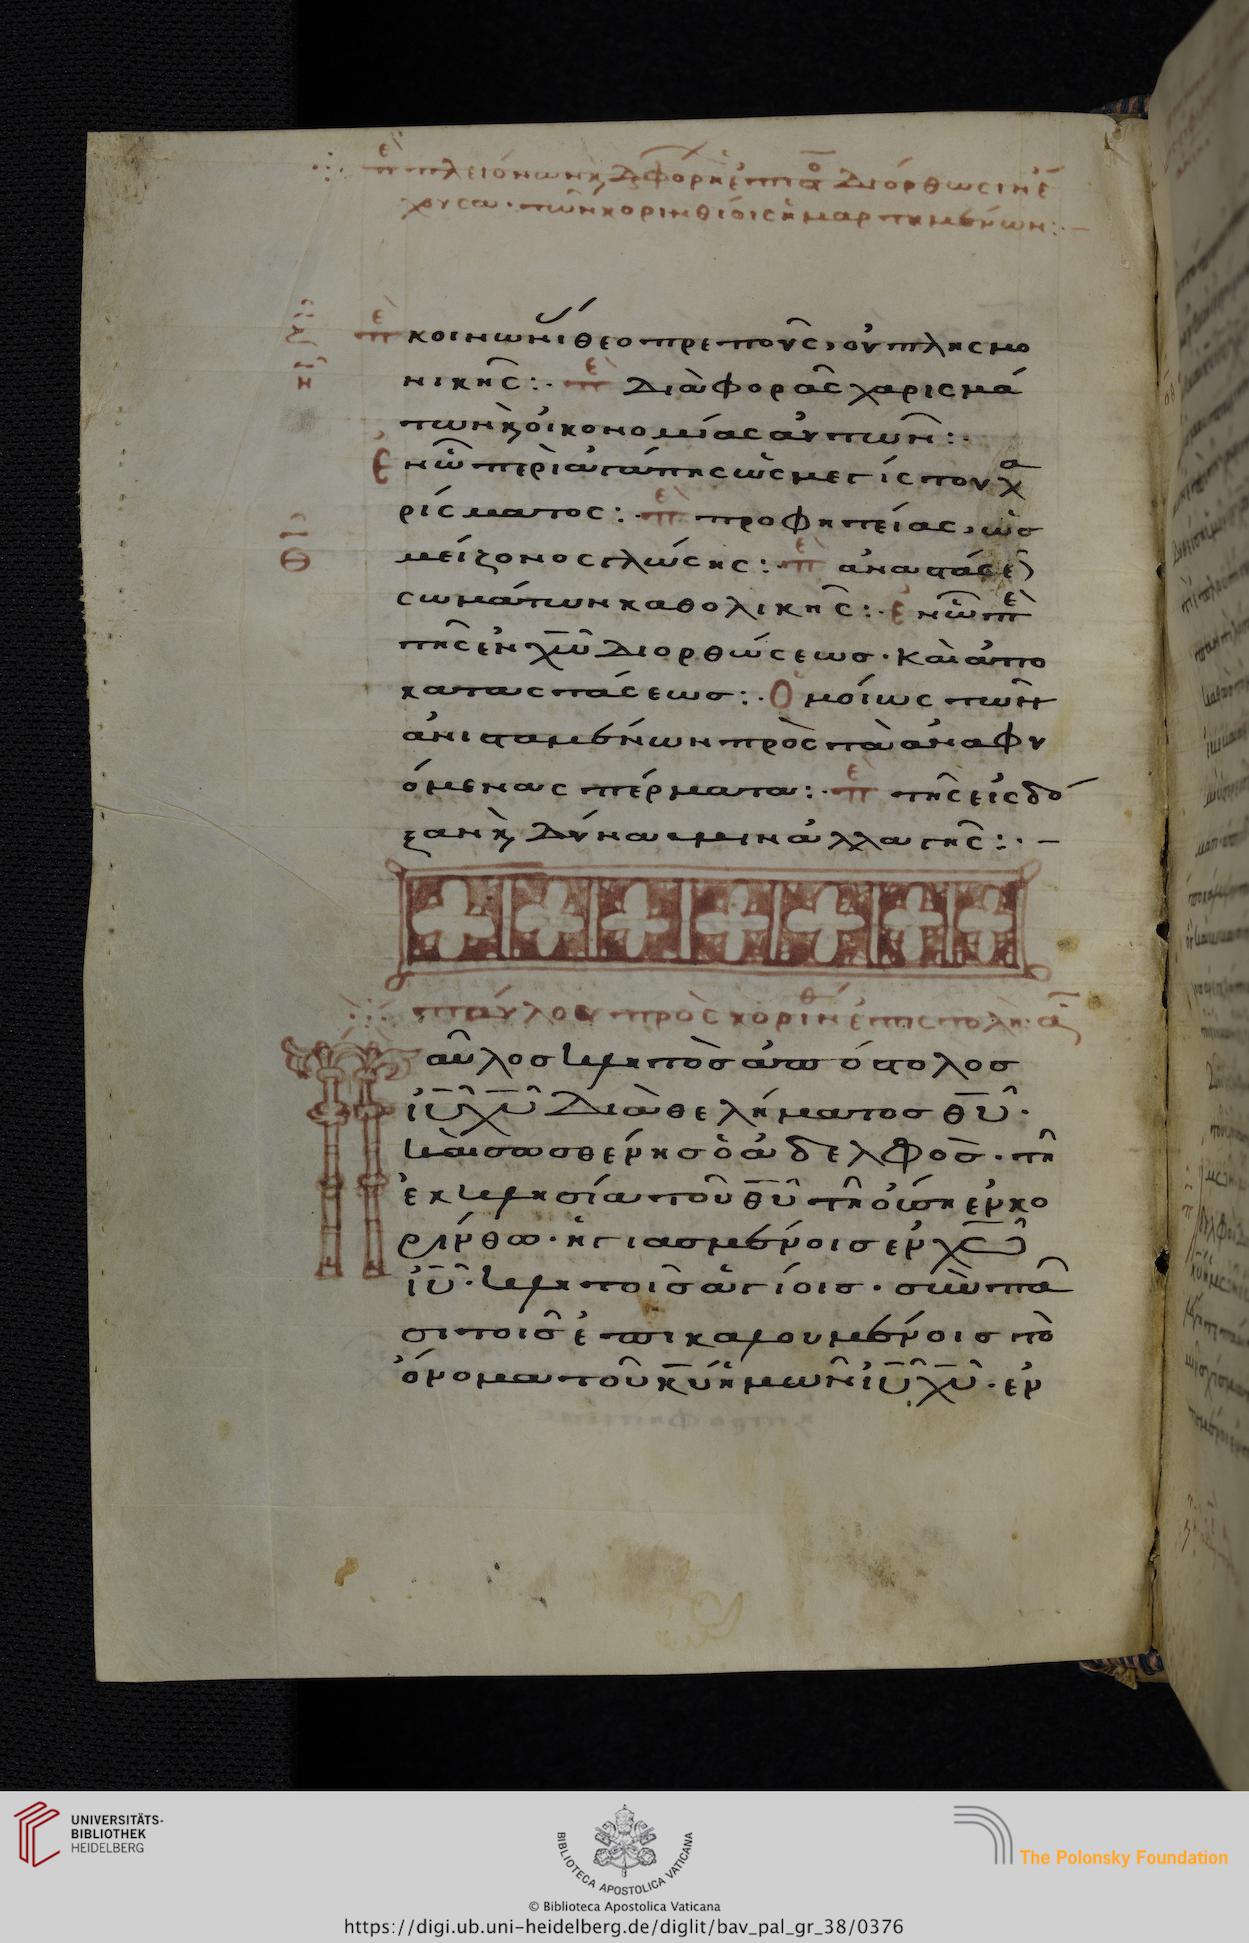 περὶ πλειόνων καὶ διαφόρων ἐπιστολὴ πρὸς διόρθωσιν ἔ
χουσα· τῶν κορινθίοις ἡμαρτημένων:–
περὶ κοινωνίας θεοπρεποῦς, οὐ πλησμο
νικῆς:· περὶ διαφορᾶς χαρισμά
των κ οἰκονομίας αὐτῶν:·
ἐν ᾧ περὶ ἀγάπης ὡς μεγίστου χα
ρίσματος:· περὶ προφητείας, ὡς
μείζονος γλώσης:· περὶ ἀναστάσε
σωμάτων καθολικῆς:· ἐν ᾧ περὶ
τῆς ἐν χω διορθώσεως· καὶ ἀπο
καταστάσεως:· Ὁμοίως τῶν
ἀνισταμένων πρὸς τὰ ἀναφυ
όμενα σπέρματα:· περὶ τῆς εἰς δό
ξαν κ δύναμιν ἀλλαγῆς:·–
παύλου πρὸς κορινθ ἐπιστολὴ· α
Παῦλος κλητὸς ἀπόστολος
ιυ χυ διὰ θελήματος θυ·
καὶ σωσθένης ὁ ἀδελφὸς· τῆ
ἐκκλησία τοῦ θυ τῆ οὔση ἐν κο
ρίνθω· ἡγιασμένοις ἐν χω
ιυ· κλητοῖς ἁγίοις· σὺν πᾶ
σι τοῖς ἐπικαλουμένοις τὸ
ὄνομα τοῦ κυ ἡμῶν ιυ χυ· ἐν
UNIVERSITÄTS-
BIBLIOTHEK
HEIDELBERG
BIBLIOTECA APOSTOLICA VATICANA
The Polonsky Foundation
© Biblioteca Apostolica Vaticana
https://digi.ub.uni-heidelberg.de/diglit/bav_pal_gr_38/0376